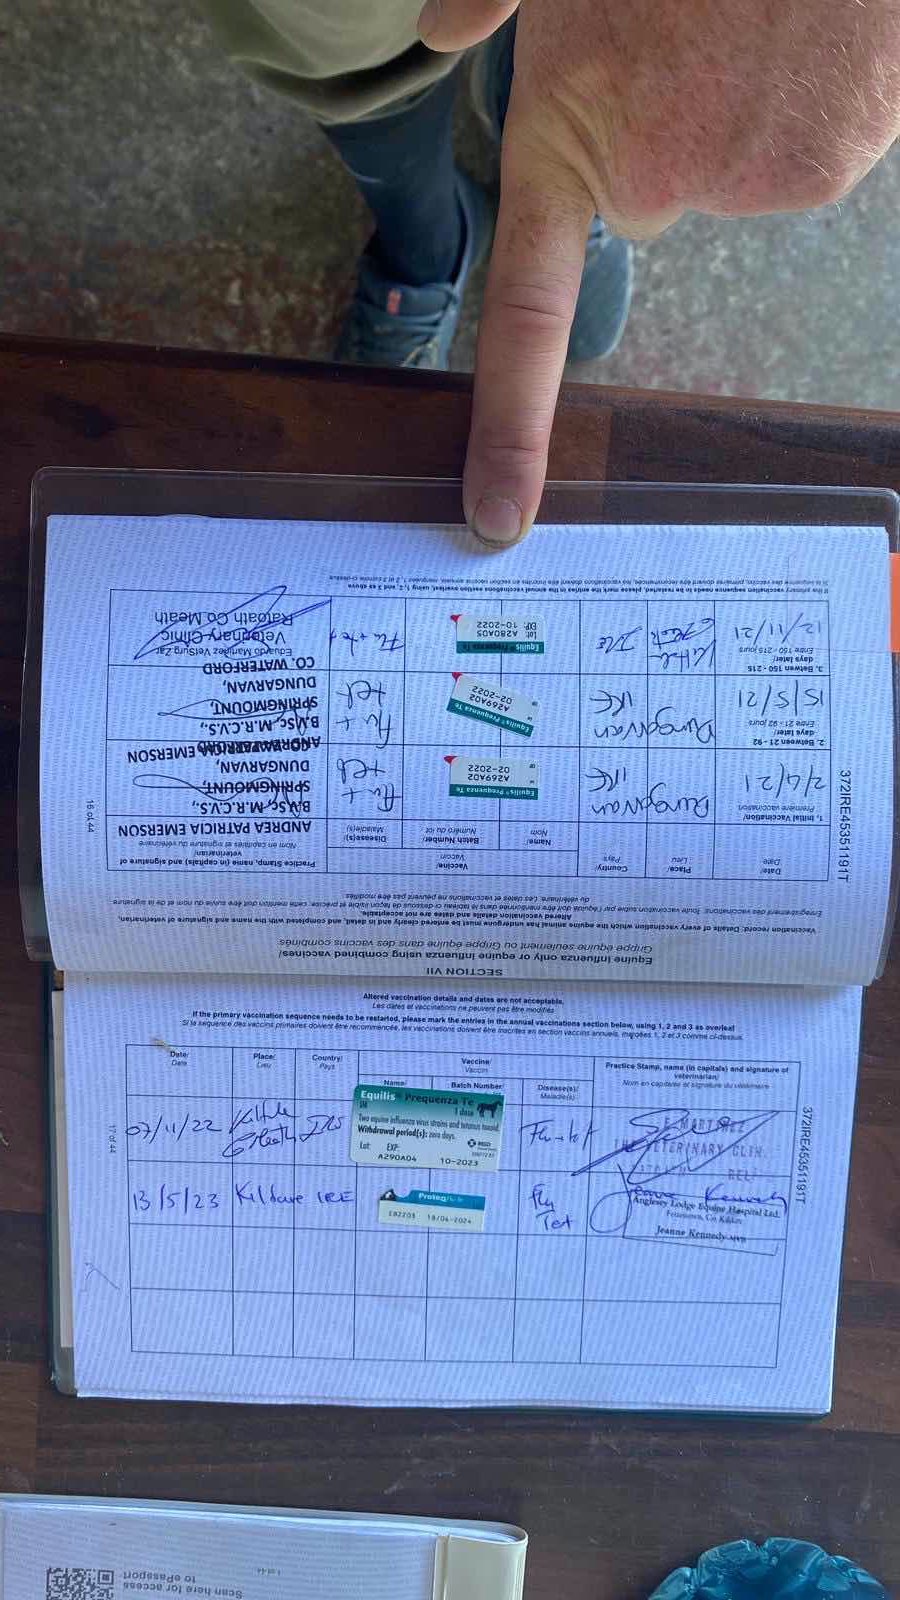 SECTION VII
Equine influenza only or equine influenza using combined vaccines/
Grippe équine seulement ou Grippe équine dans des vaccins combinés
Vaccination record: Details of every vaccination which the equine animal has undergone must be entered clearly and in detail, and completed with the name and signature of veterinarian.
Altered vaccination details and dates are not acceptable.
Enregistrement des vaccinations: Toute vaccination subie par l'équidé doit être mentionnée dans le tableau ci-dessous de façon lisible et précise, cette mention doit être suivie du nom et de la signature
du vétérinaire. Les dates et vaccinations ne peuvent pas être modifiés
Date/
Date
Place/
Lieu
Country/
Pays
Vaccine/
Vaccin
Name/
Nom
Batch Number/
Numéro du lot
Disease(s)/
Maladie(s)
Practice Stamp, name (in capitals) and signature of
veterinarian/
Nom en capitales et signature du vétérinaire
1. Initial Vaccination/
Première vaccination
2/4/21
Dungarvan
IRE
Equilis® Prequenza Te
A269A02
02-2022
Flu +
teb
ANDREA PATRICIA EMERSON
B.VSc, M.R.C.V.S.,
SPRINGMOUNT,
DUNGARVAN,
2. Between 21 - 92
days later/
Entre 21 - 92 jours
15/5/21
Dungarvan
IRE
Equilis® Prequenza Te
A269A02
02-2022
Flu +
teb
ANDREA PATRICIA EMERSON
B.VSc, M.R.C.V.S.,
SPRINGMOUNT,
DUNGARVAN,
CO. WATERFORD
3. Betwen 150 - 215
days later/
Entre 150 - 215 jours
12/11/21
Equilis® Prequenza Te
Lot: A280A05
EXP: 10-2022
Flu + tet
Eduardo Martinez VetSurg Zar
Veterinary Clinic
Ratoath Co Meath
If the primary vaccination sequence needs to be restarted, please mark the entries in the annual vaccinations section overleaf, using 1, 2 and 3 as above
Si la séquence des vaccins, primaires doivent être recommencés, les vaccinations doivent être inscrites en section vaccins annuels, marquéez 1, 2 et 3 comme ci-dessus
372IRE45351191T
16 of 44
Altered vaccination details and dates are not acceptable.
Les dates et vaccinations ne peuvent pas être modifiés
If the primary vaccination sequence needs to be restarted, please mark the entries in the annual vaccinations section below, using 1, 2 and 3 as overleaf
Si la séquence des vaccins primaires doivent être recommencés, les vaccinations doivent être inscrites en section vaccins annuels, marquées 1, 2 et 3 comme ci-dessus.
Date/
Date
Place/
Lieu
Country/
Pays
Vaccine/
Vaccin
Name/
Batch Number/
Disease(s)/
Maladie(s)
Practice Stamp, name (in capitals) and signature of
veterinarian/
Nom en capitales et signature du vétérinaire
07/11/22
Equilis® Prequenza Te
1 dose
Two equine influenza virus strains and tetanus toxoid.
Withdrawal period(s): zero days.
Lot: EXP:
A290A04 10-2023
Flu+tet
13/5/23
Kildare
IRE
ProteqFlu
18/04/2024
Flu
Tet
Jeanne Kennedy
Anglesey Lodge Equine Hospital Ltd.
Jeanne Kennedy MVB
372IRE45351191T
17 of 44
Scan here for access
to ePassport
1 of 44